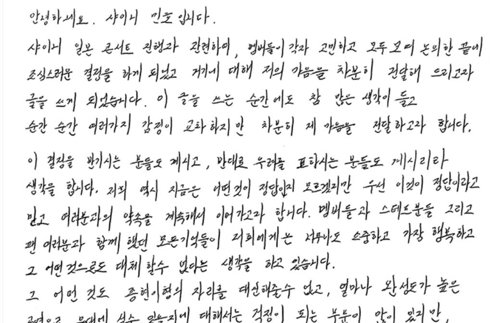 안녕하세요. 샤이니 민호입니다.
샤이니 일본 콘서트 진행과 관련하여, 멤버들이 각자 고민하고 모두 모여 논의한 끝에
조심스러운 결정을 하게 되었고 거기에 대해 저의 마음을 차분히 전달해 드리고자
글을 쓰게 되었습니다. 이 글을 쓰는 순간에도 참 많은 생각이 들고
순간 순간 여러가지 감정이 교차하지만 차분히 제 마음을 전달하고자 합니다.
이 결정을 반기시는 분들도 계시고, 반대로 우려를 표하시는 분들도 계시리라
생각을 합니다. 저희 역시 지금은 어떤것이 정답인지 모르겠지만 우선 이것이 정답이라고
믿고 여러분과의 약속을 계속해서 이어가고자 합니다. 멤버들과 스태프분들 그리고
팬 여러분과 함께 했던 모든기억들이 저희에게는 너무나도 소중하고 가장 행복하고
그 어떤것으로도 대체할수 없다는 생각을 하고 있습니다.
그 어떤 것도 종현이형의 자리를 대신해줄수 없고, 얼마나 완성도가 높은
공연으로 무대에 설수 있을지에 대해서는 걱정이 되는 부분이 많이 있지만,